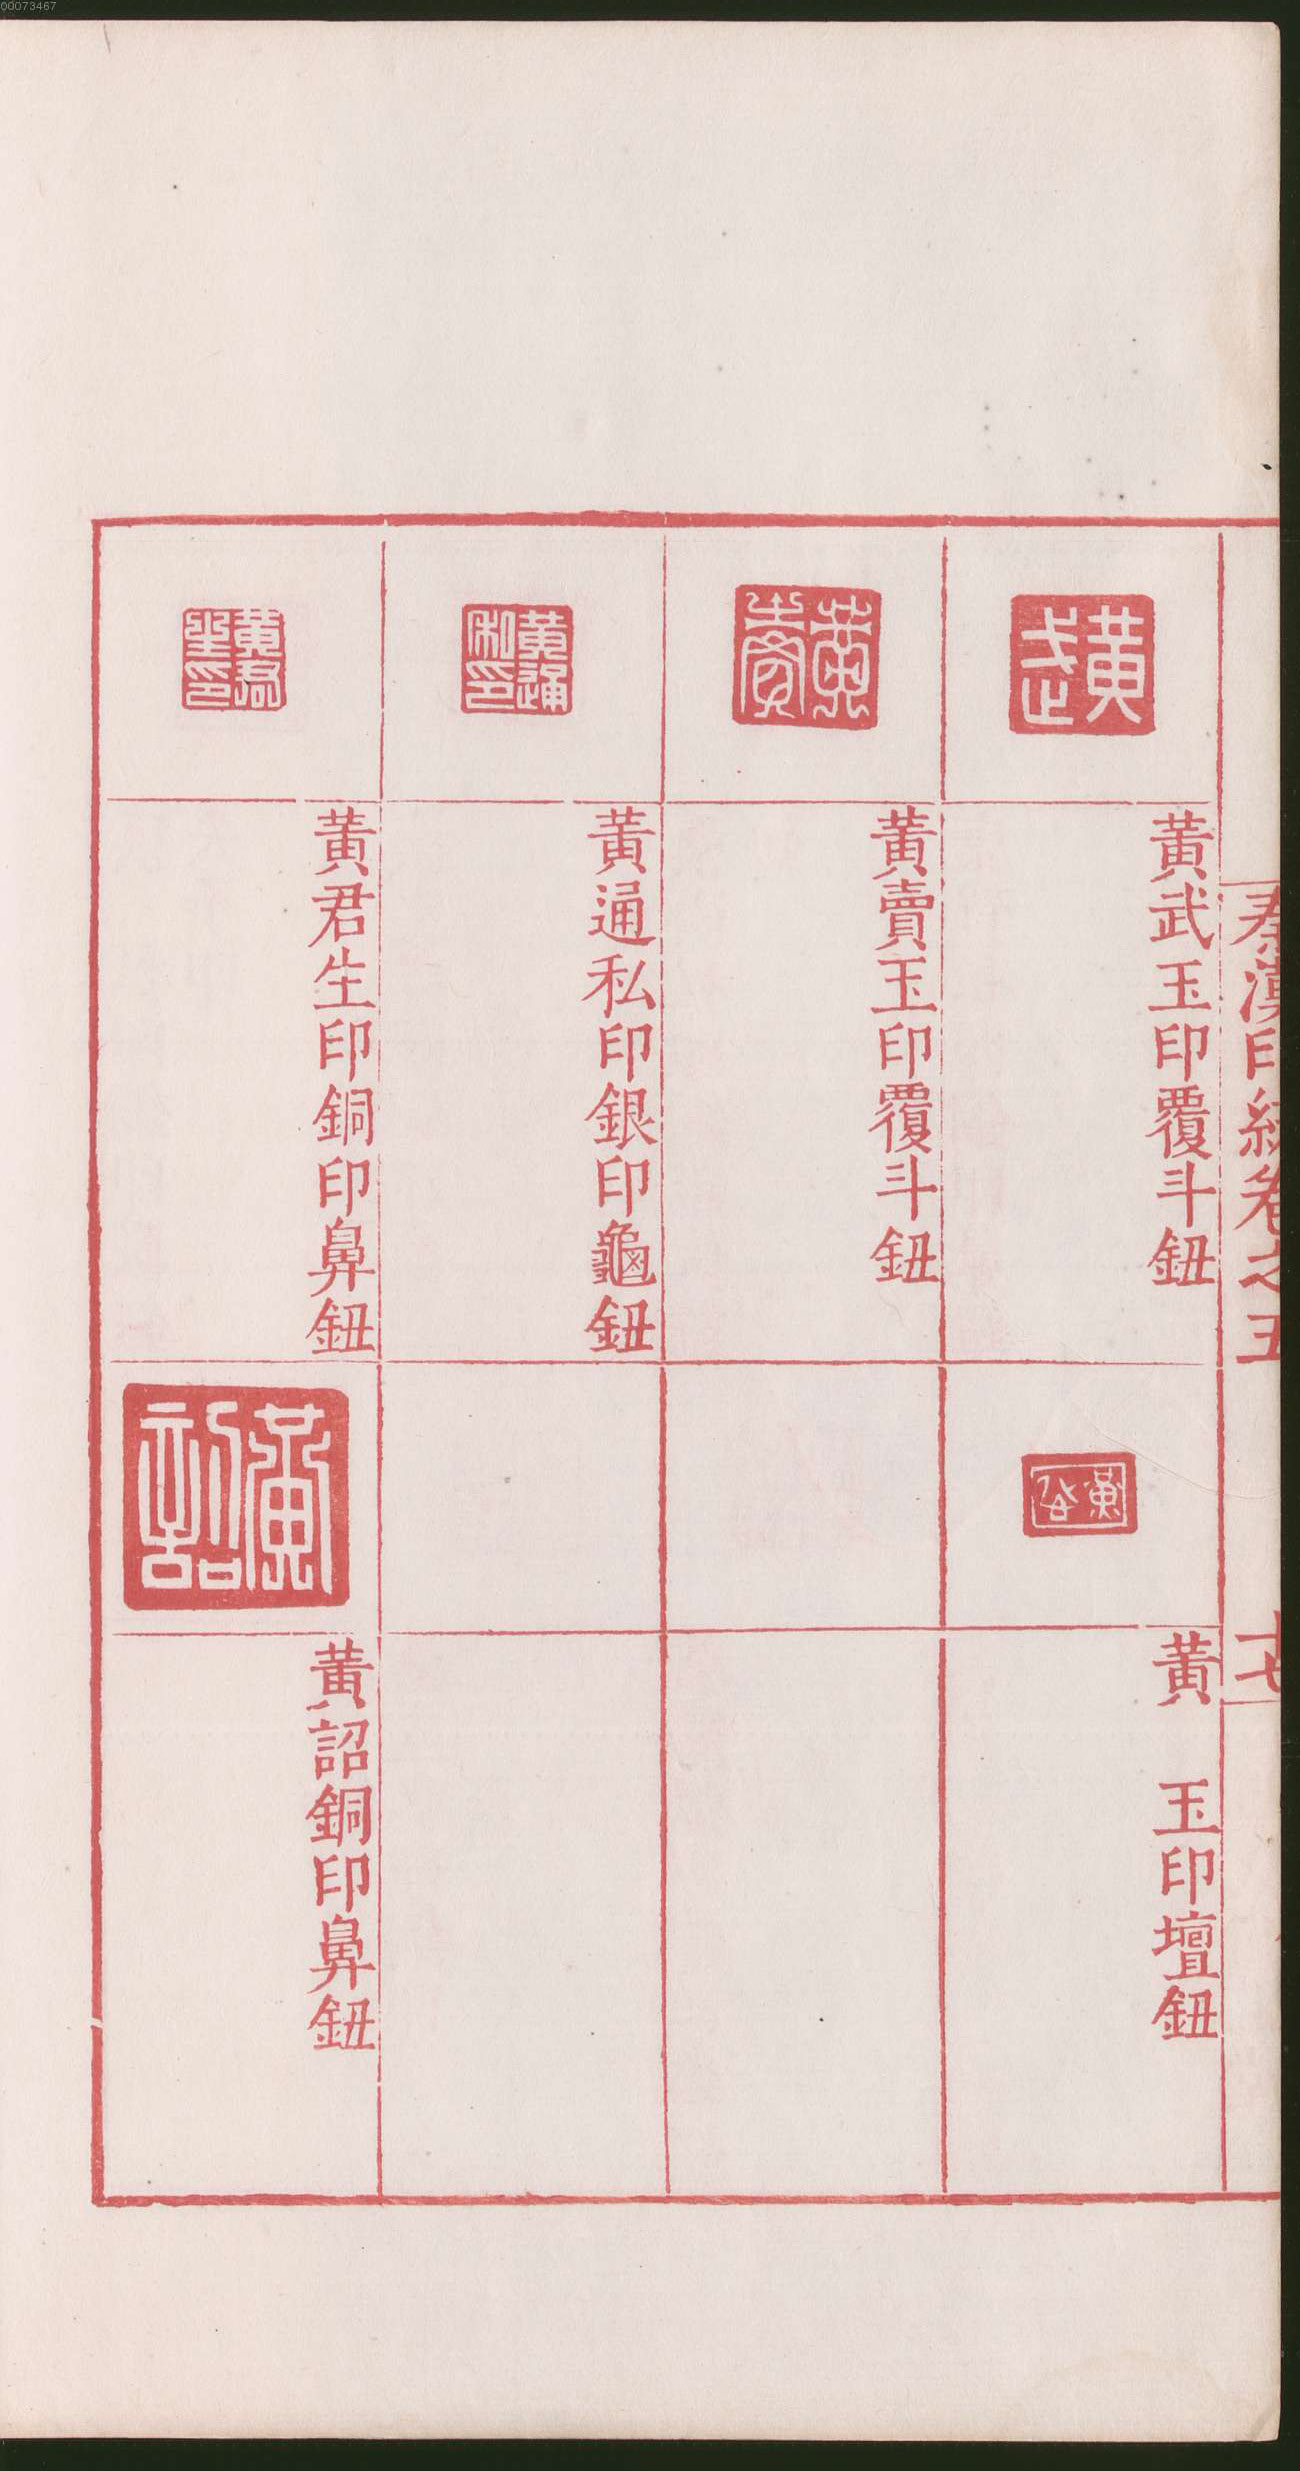 00073467
秦漢印統卷之五
十七
黃武
黃武玉印覆斗鈕
黃
黃　玉印壇鈕
黃賣
黃賣玉印覆斗鈕
黃通私印
黃通私印銀印龜鈕
黃君生印
黃君生印銅印鼻鈕
黃詔
黃詔銅印鼻鈕